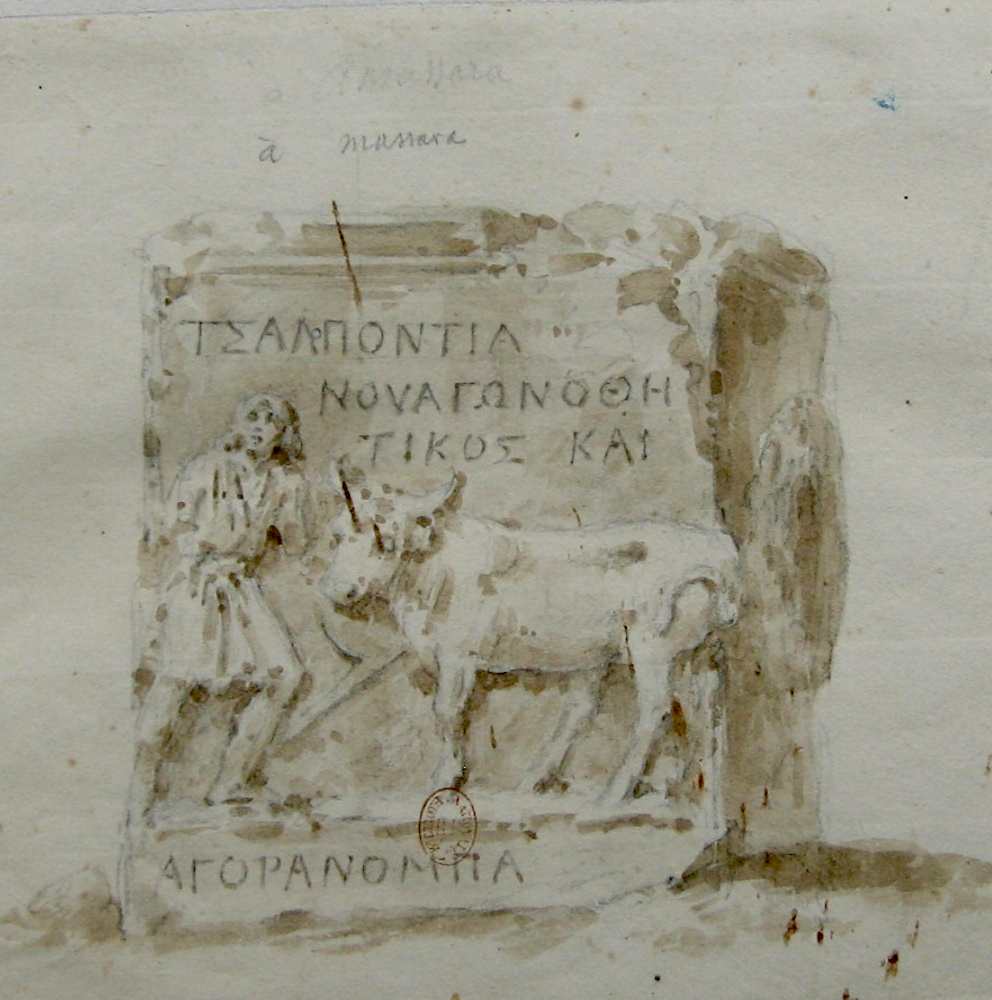 à massara
ΤΣΑΛΠΟΝΤΙΑ
ΝΟΥΑΓΩΝΟΘΗ
ΤΙΚΟΣ ΚΑΙ
ΑΓΟΡΑΝΟΜΠΑ